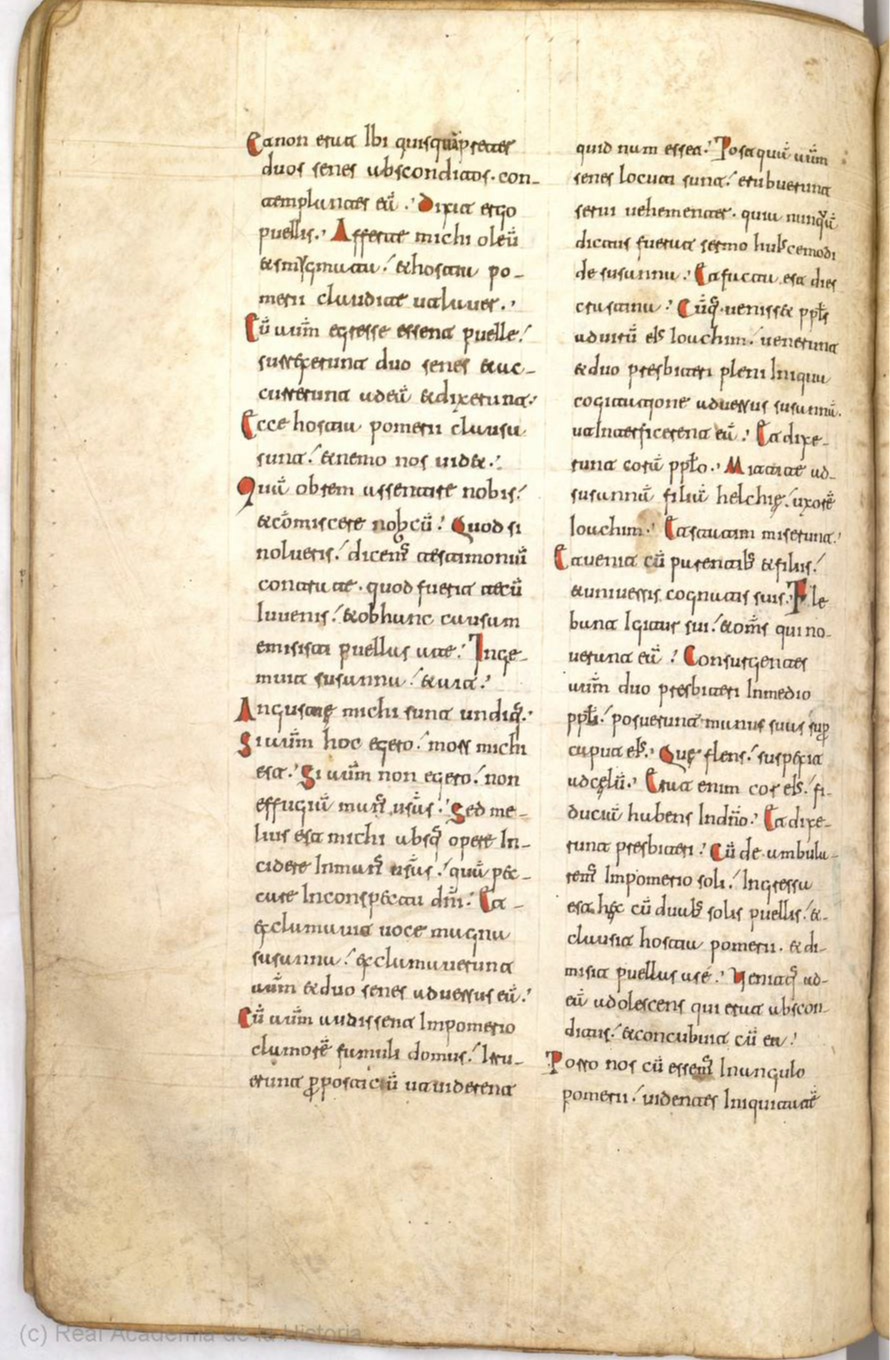 Et non erat ibi quisquã preter
duos senes absconditos. con-
templantes eã. Dixit ergo
puellis. Afferte michi oleũ
et smigmata. et hostia po-
merii claudite ut laver.
Cũ aum̃ egresse essent puelle.
surrexerunt duo senes et ac-
currerunt ad eã et dixerunt.
Ecce hostia pomerii clausa
sunt. et nemo nos videt.
Quã obrem assentare nobis.
et cõmiscere nobcũ. Quod si
nolueris. dicem̃ testimoniũ
contra te. quod fuerit tecũ
iuvenis. et ob hanc causam
emisisti puellas a te. Inge-
muit susanna. et ait.
Anguste michi sunt undiq̃.
Si aum̃ hoc egero. mors michi
est. Si aum̃ non egero. non
effugiũ man̄ us̃us. Sed me-
lius est michi absq̃ opere in-
cidere in man̄ us̃us. quã pec-
care in conspectu dñi. Et
exclamavit voce magna
susanna. exclamaverunt
aum̃ et duo senes adversus eã.
Cũ aum̃ audissent in pomerio
clamorẽ famuli domus. irru-
erunt p posticũ ut viderent
quid nam esset. Postquã aum̃
senes locuti sunt. erubuerunt
servi vehementer. quia nunquã
dictus fuerat sermo huiscemodi
de susanna. Et facta est dies
crastina. Cũq̃ venisset ppl̃s
ad virũ eĩs ioachim. venerunt
et duo presbiteri pleni iniqua
cogitatione adversus susannã.
ut interficerent eã. Et dixe-
runt corã ppl̃o. Mittite ad
susannã filiã helchie. uxorẽ
ioachim. Et statim miserunt.
Et venit cũ parentib̃ et filiis.
et universis cognatis suis. Fle
bant igitur sui. et oms̃ qui no-
verant eã. Consurgentes
aum̃ duo presbiteri in medio
ppl̃i. posuerunt manus suas sup
caput eĩs. Que flens. suspexit
ad celũ. Erat enim cor eĩs. fi-
duciã habens in dño. Et dixe-
runt presbiteri. Cũ deambula-
rem̃ in pomerio soli. Ingressa
est hec cũ duab̃ solis puellis. et
clausit hostia pomerii. et di-
misit puellas a se. Venitq̃ ad
eã adolescens qui erat abscon-
ditus. et concubuit cũ ea.
Porro nos cũ essem̃ in angulo
pomerii. videntes iniquitatẽ
(c) Real Academia de la Historia